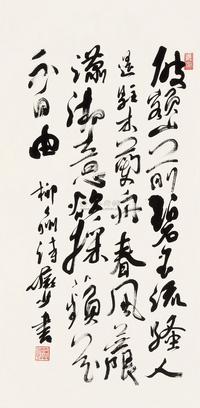 破额山前碧玉流骚人
遥驻木兰舟春风无限
潇湘意欲採蘋花
不自由 柳州诗 书